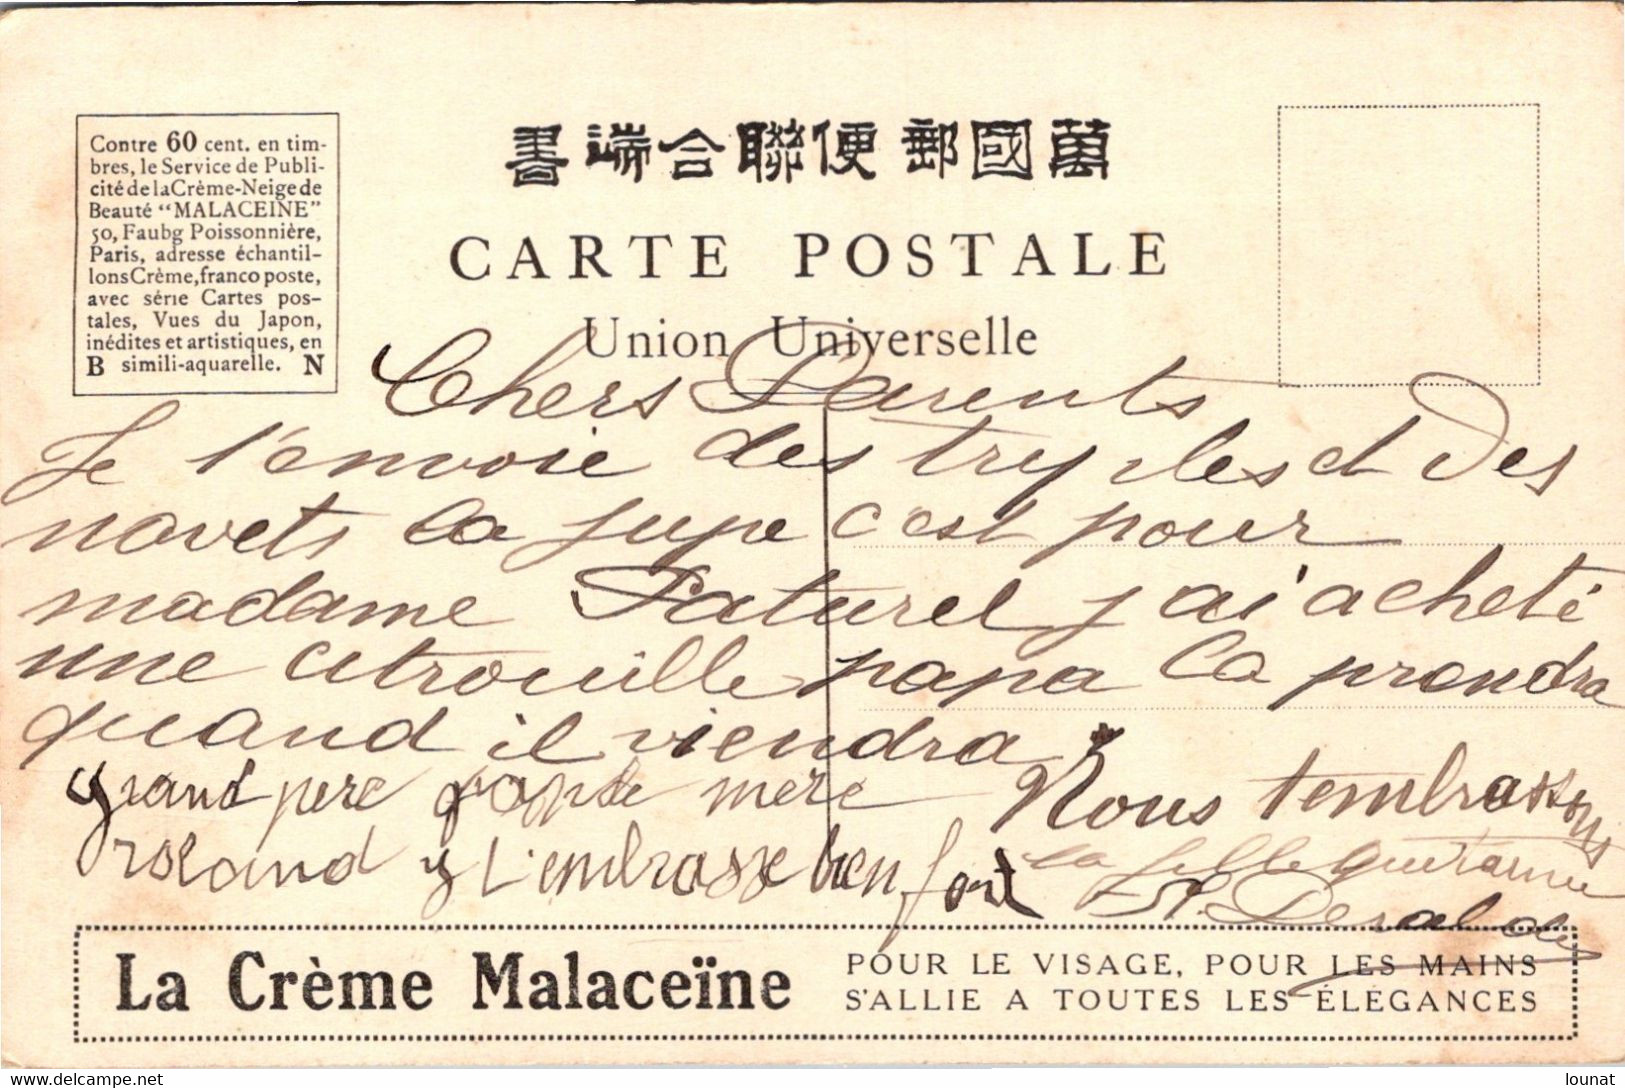 Contre 60 cent. en tim-
bres, le Service de Publi-
cité de la Crème-Neige de
Beauté "MALACEINE"
50, Faubg Poissonnière,
Paris, adresse échantil-
lons Crème, franco poste,
avec série Cartes pos-
tales, Vues du Japon,
inédites et artistiques, en
B simili-aquarelle. N
書端合聯便郵國萬
CARTE POSTALE
Union Universelle
Chers Parents
Je t'envoie des et Des
navets la jupe c'est pour
madame Paturel j'ai acheté
une citrouille papa la prendra
quand il viendra
grand pere grande mere
roland t'embrasse bien fort
Nous t'embrassons
la fille
La Crème Malaceïne
POUR LE VISAGE, POUR LES MAINS
S'ALLIE A TOUTES LES ÉLÉGANCES
www.delcampe.net
lounat